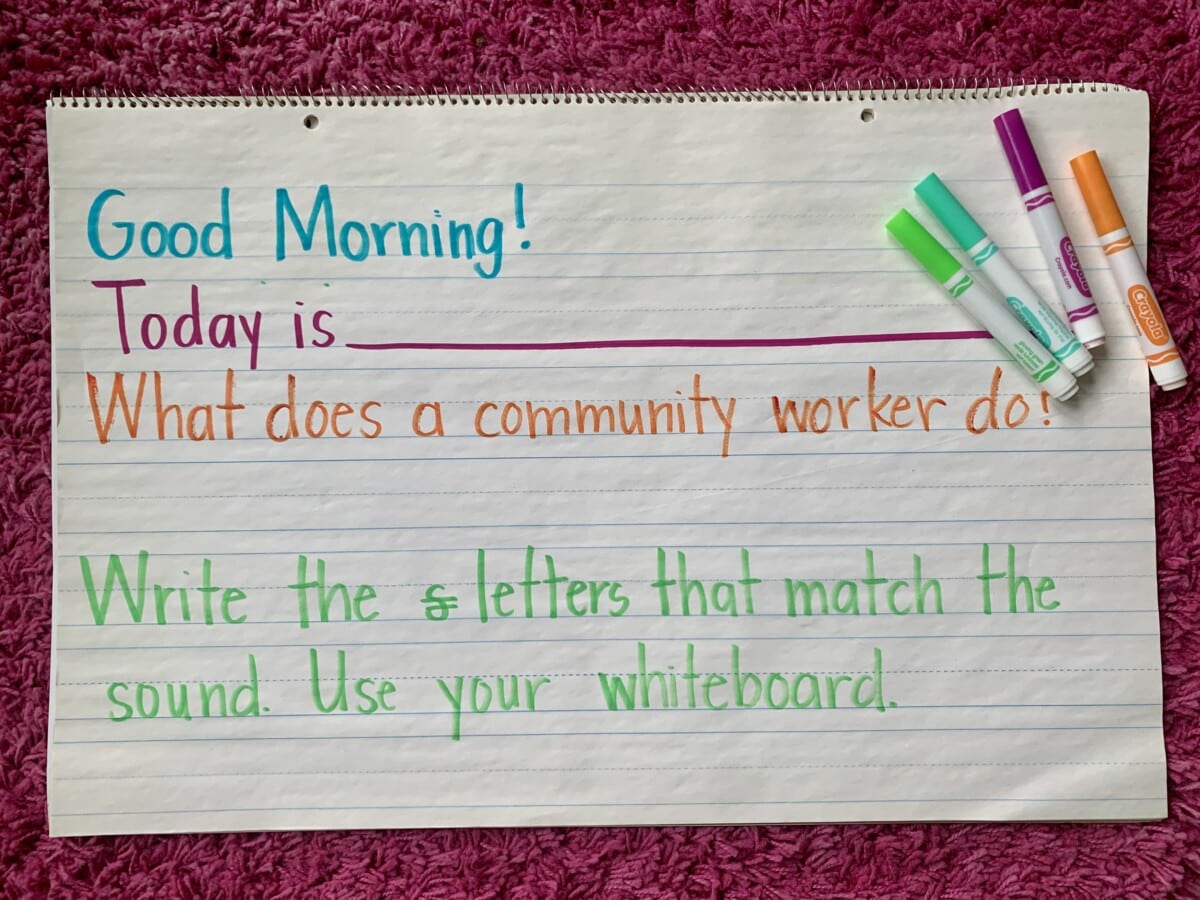 Good Morning!
Today is
What does a community worker do?
Write the letters that match the
sound. Use your whiteboard.
Crayola
Crayola.com
Crayola